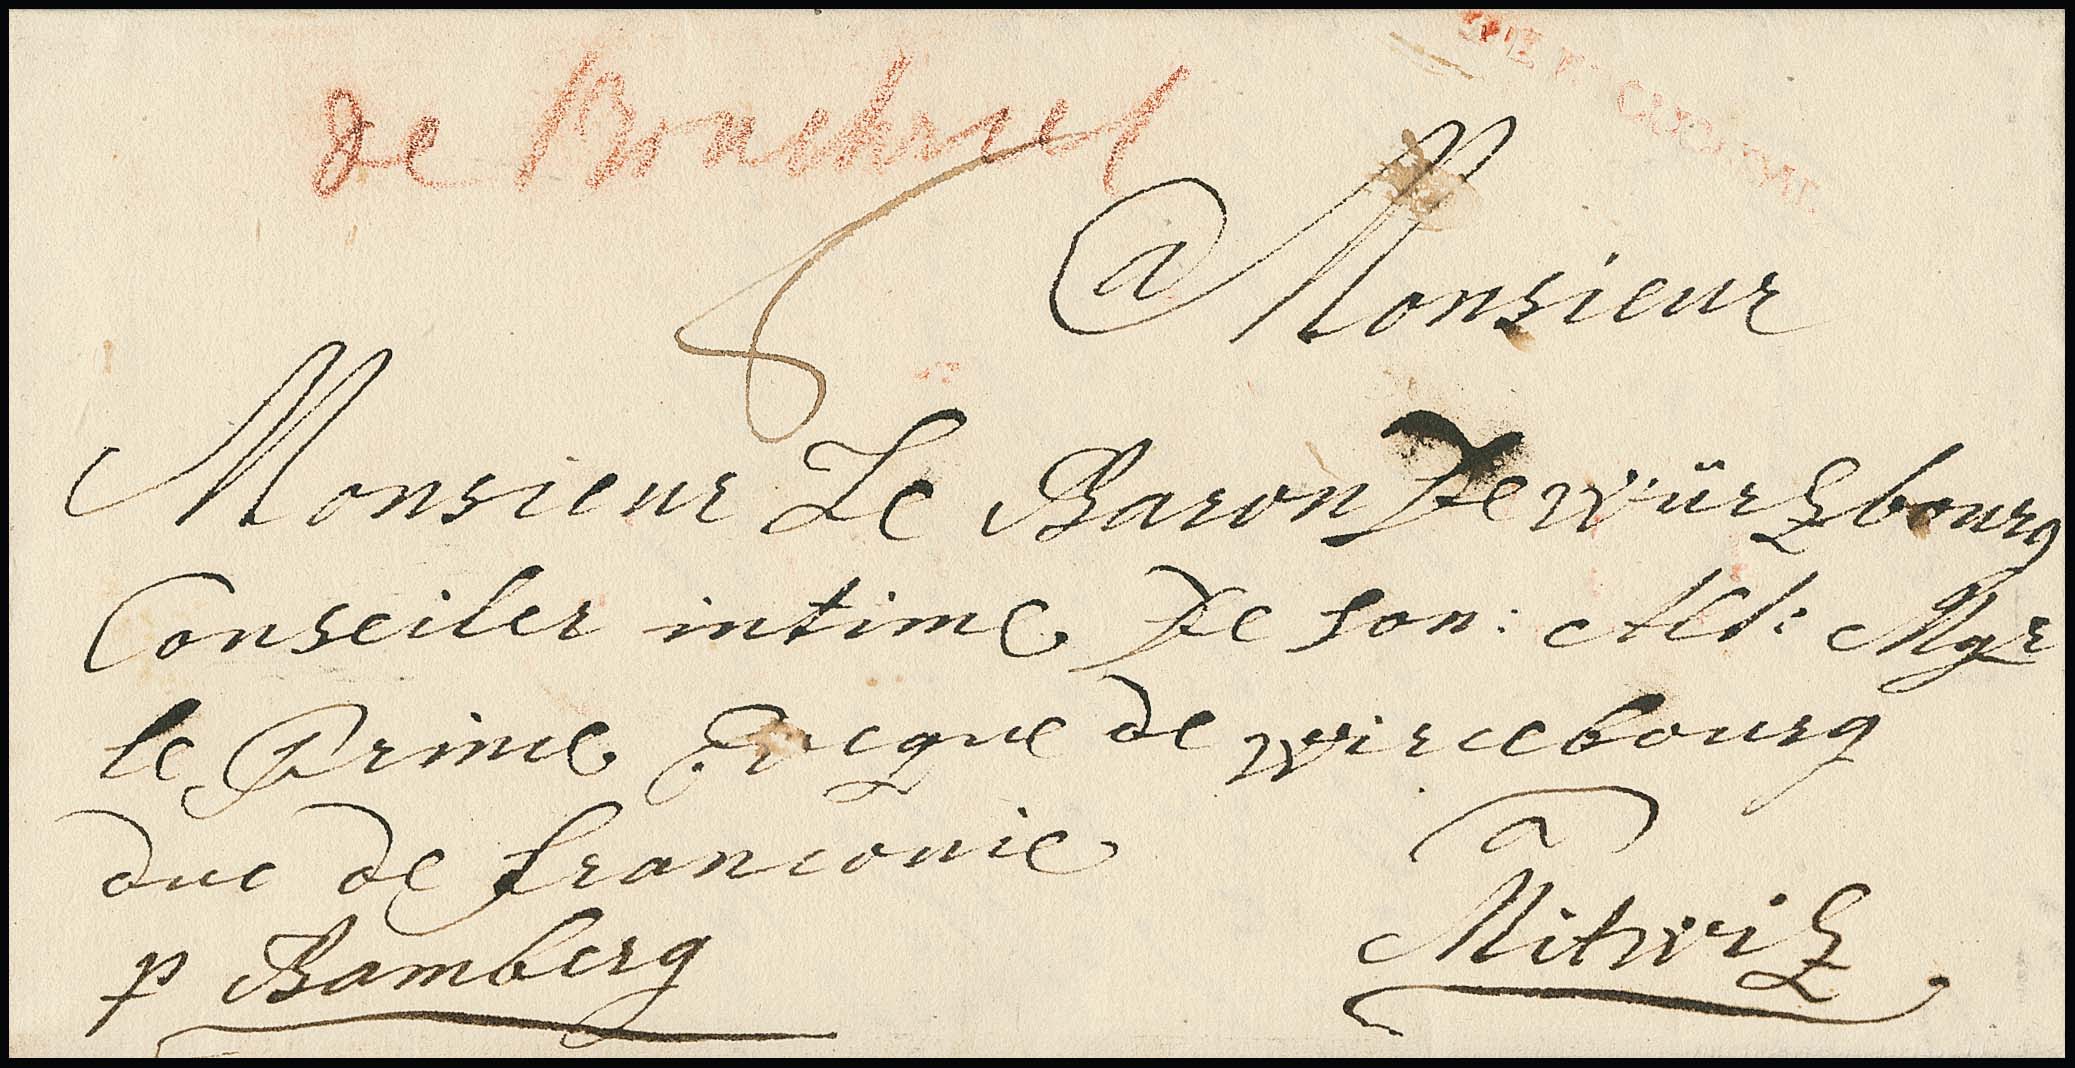 de Bruchsal
à Monsieur
Monsieur Le Baron De würtzbourg
Conseiler intime De son: Alt: Mgr
le Prince Evecque de wircebourg
duc de franconie
à
p Bamberg
Mitwitz